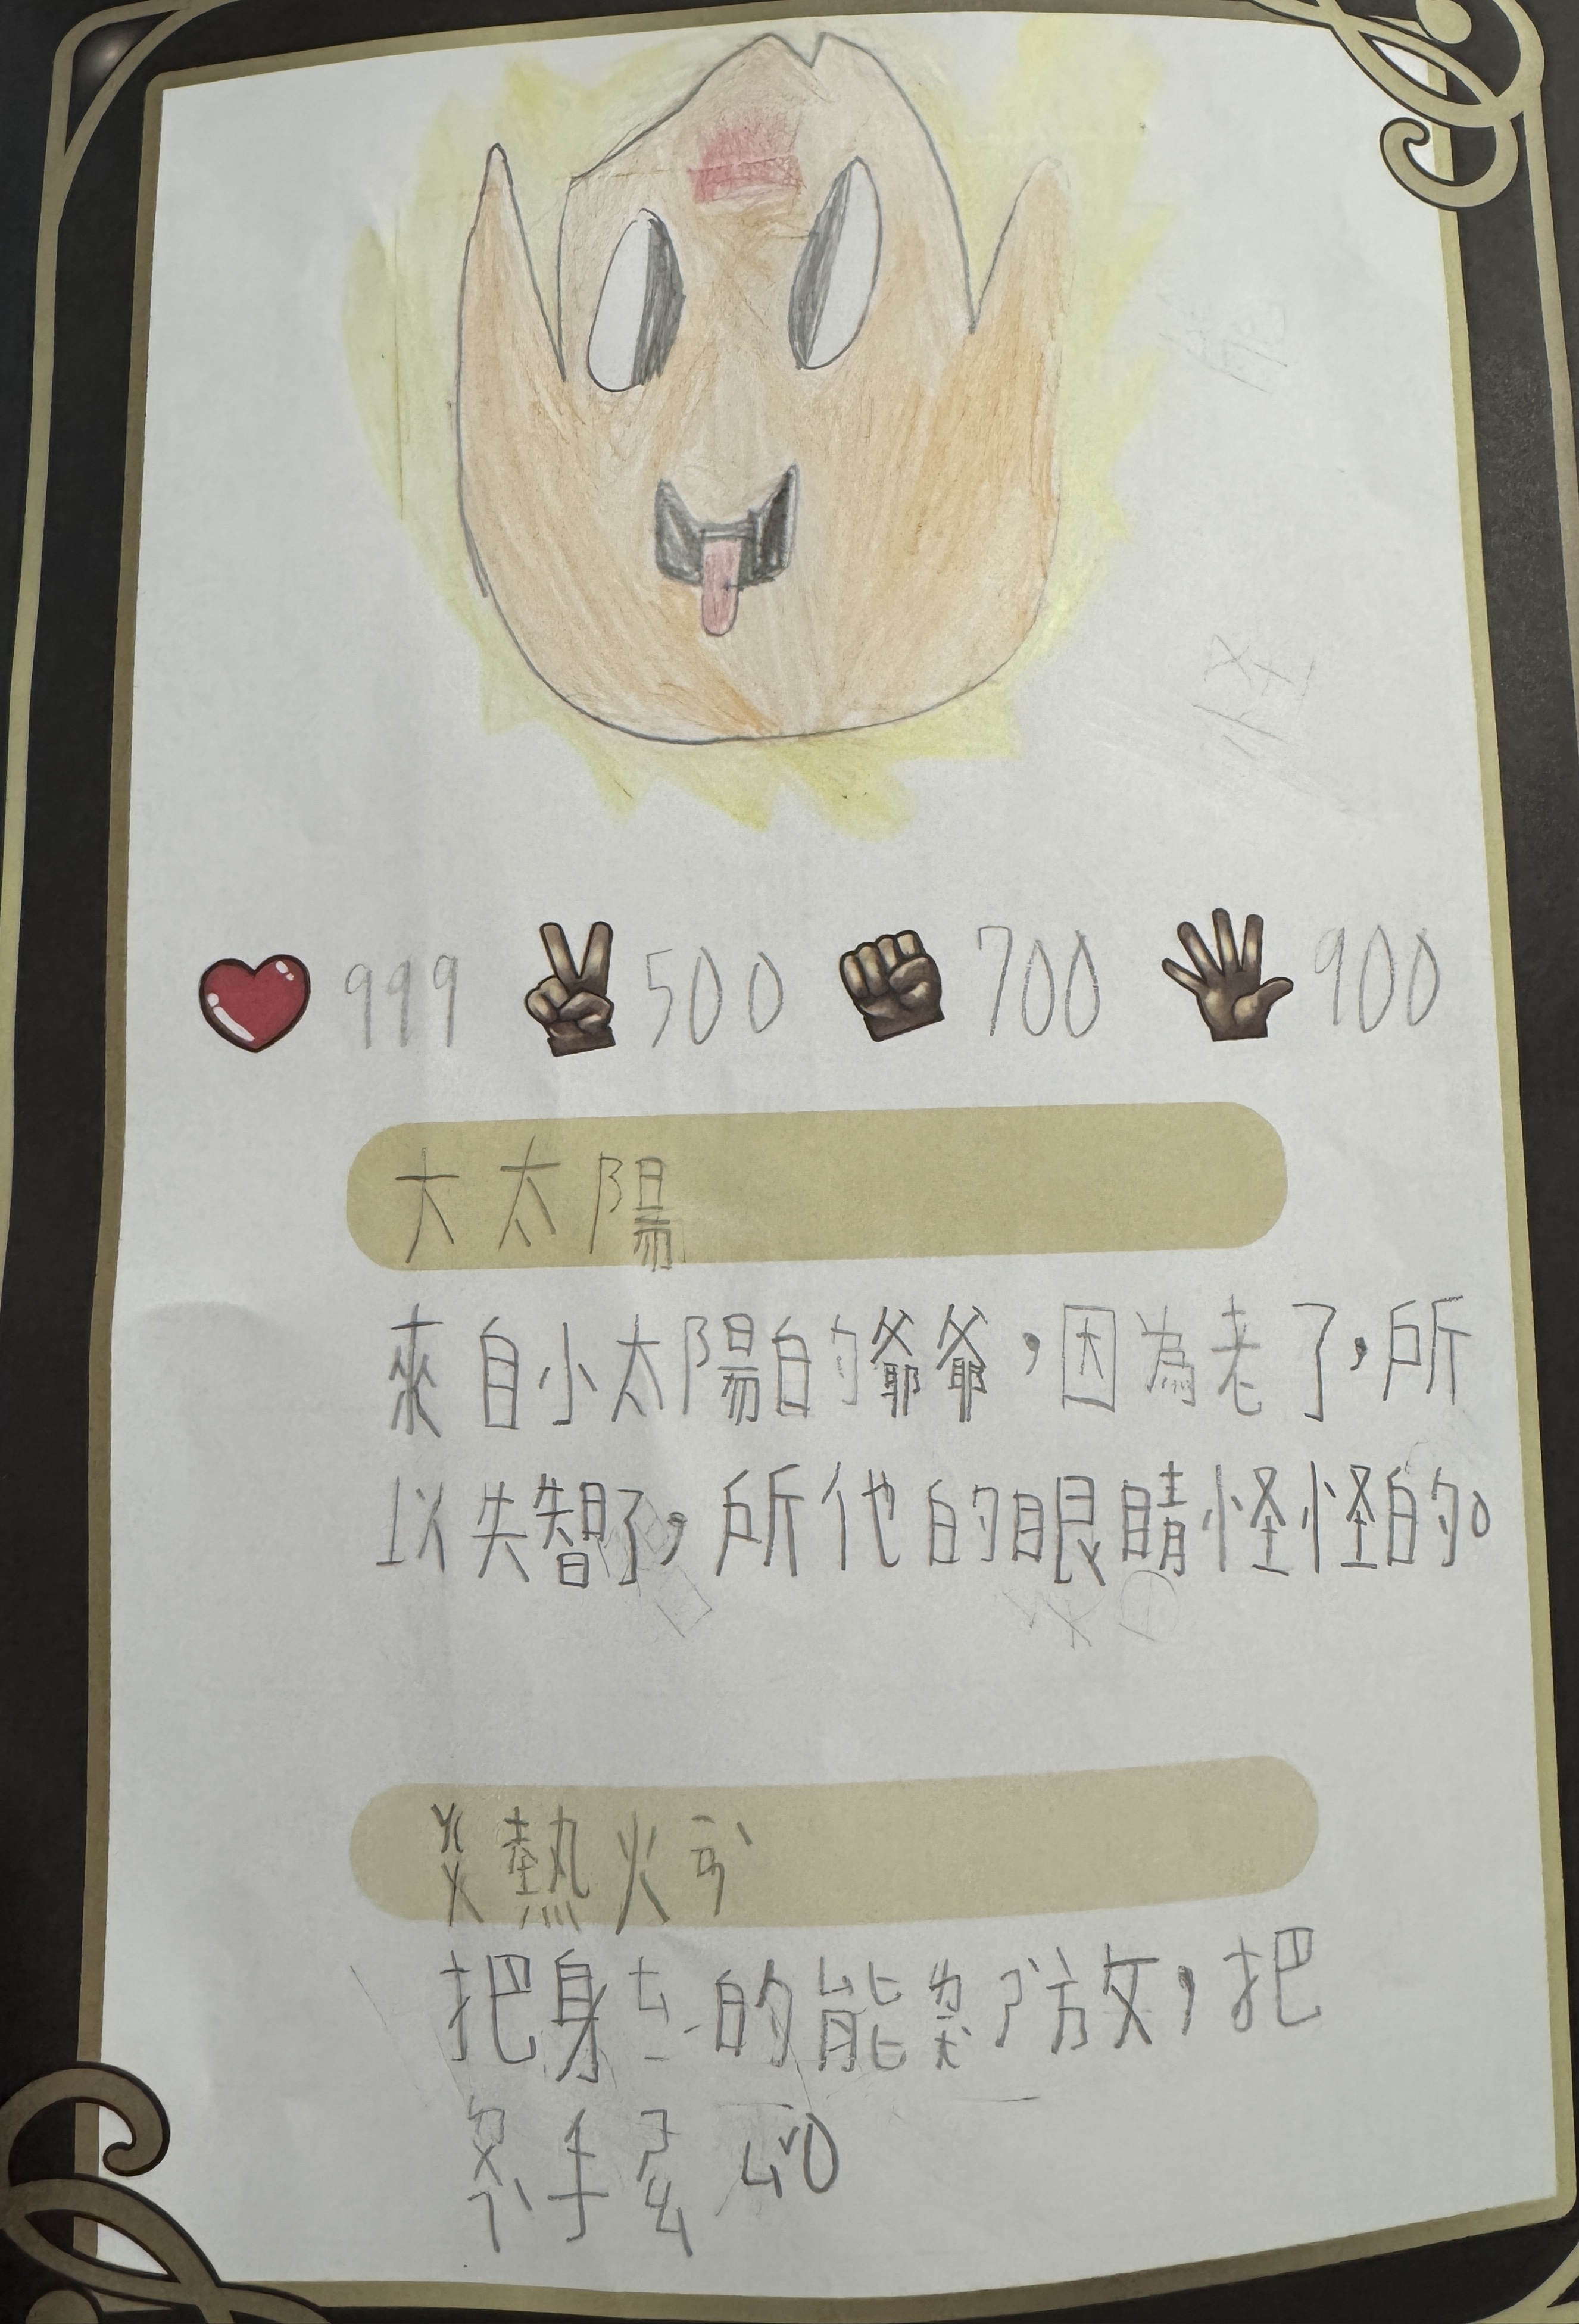 999 500 700 900
大太陽
來自小太陽的爺爺，因為老了，所
以失智了，所他的眼睛怪怪的。
熱火
把身 的能 放，把
手